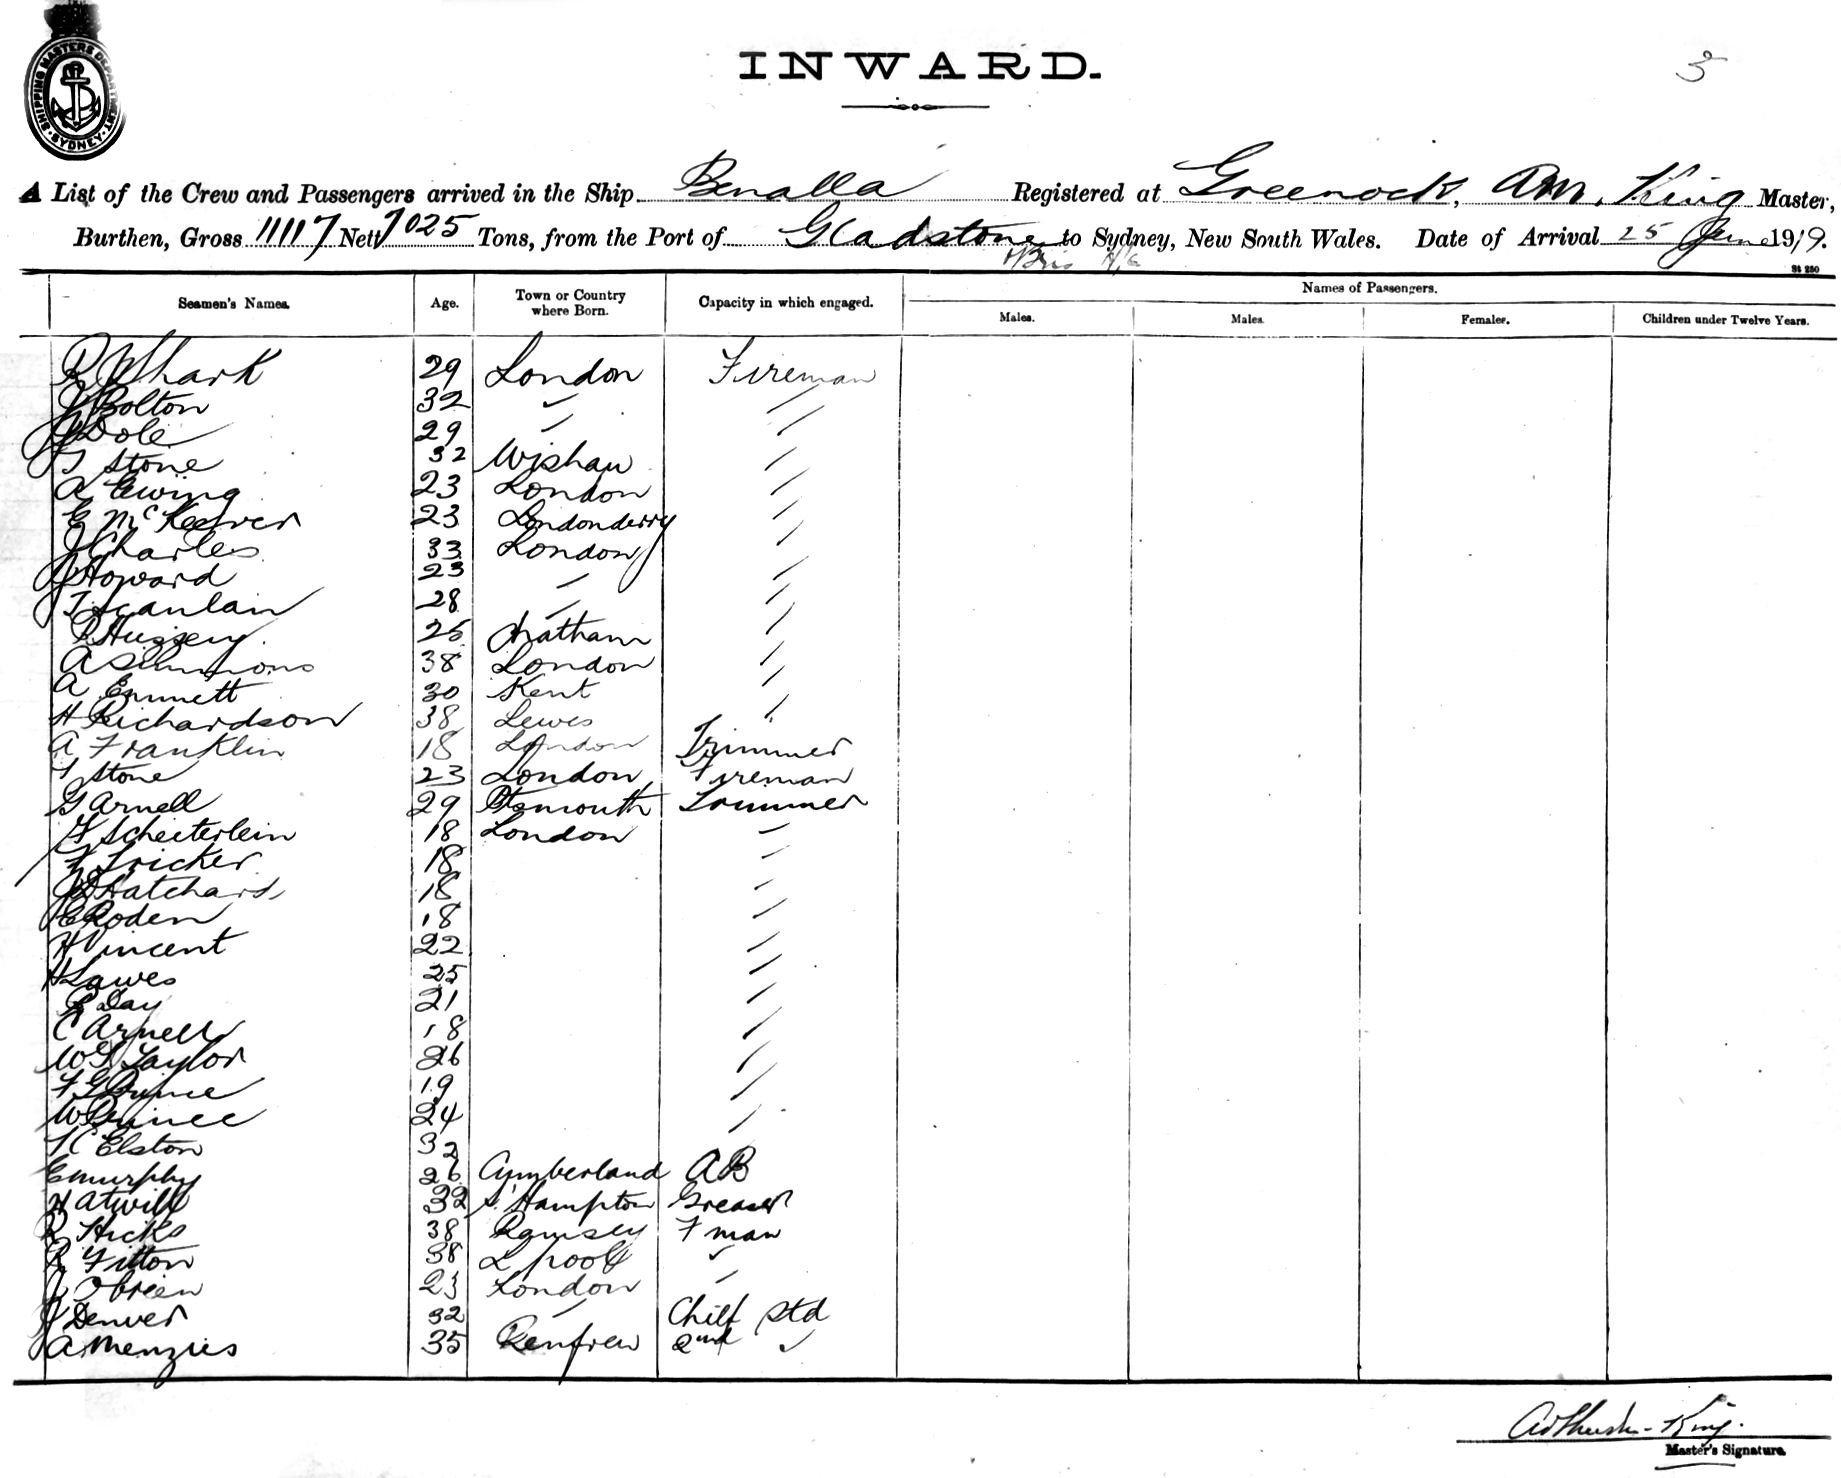 SHIPPING MASTERS DEPARTMENT · SYDNEY ·
INWARD.
A List of the Crew and Passengers arrived in the Ship Benalla Registered at Greenock, AM. King Master,
Burthen, Gross 11117 Nett 7025 Tons, from the Port of Gladstone to Sydney, New South Wales. Date of Arrival 25 June 1919.
St 250
Seamen's Names. Age. Town or Country where Born. Capacity in which engaged. Names of Passengers.
Males. Males. Females. Children under Twelve Years.
Shark 29 London Fireman
Bolton 32 " "
Dole 29 " "
T Stone 32 Wishaw "
A Ewing 23 London "
E McKeever 23 Londonderry "
J Charles 33 London "
J Howard 23 " "
T Scanlain 28 " "
P Hussey 25 Chatham "
A Simmons 38 London "
A Emmett 30 Kent "
H Richardson 38 Lewes "
A Franklin 18 London Trimmer
T Stone 23 London Fireman
G Arnell 29 Ptsmouth Trimmer
Scheiterlein 18 London "
F Tricker 18 "
Hatchard 18 "
E Roden 18 "
H Vincent 22 "
H Lawes 25 "
R Day 21 "
C Arnell 18 "
W G Taylor 26 "
F G Prince 19 "
W Prince 24 "
T C Elston 32
E Murphy 26 Cumberland AB
H Atwill 32 S'Hampton Greaser
R Hicks 38 Ramsey F man
R Fitton 38 L pool "
J Obrien 23 London "
J Denver 32 " Chief Std
A Menzies 35 Renfrew 2nd "
King.
Master's Signature.